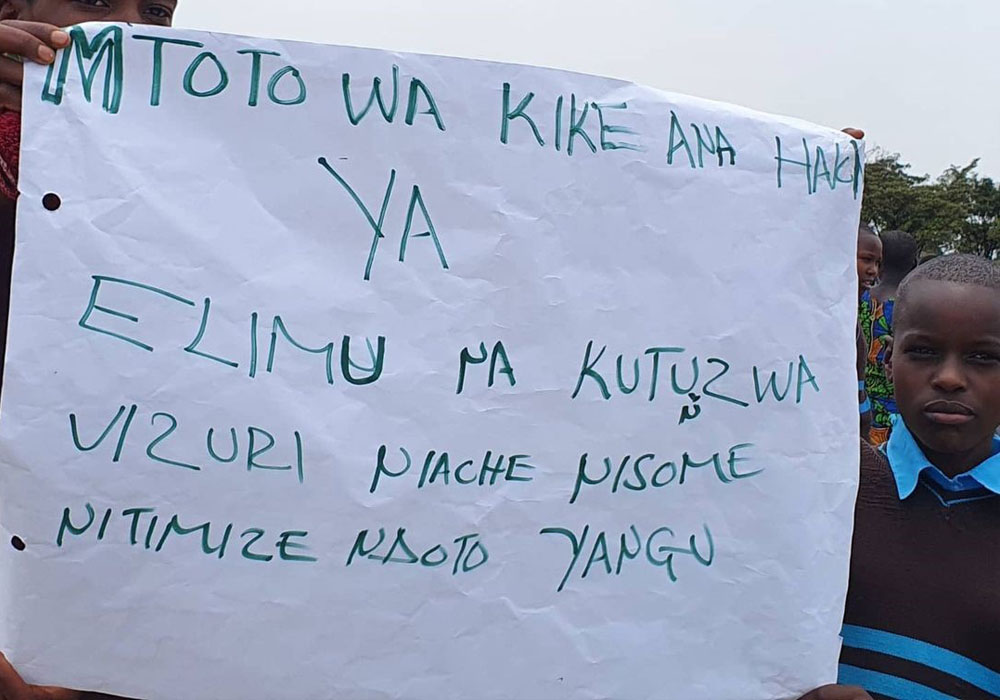 MTOTO WA KIKE ANA HAKI
YA
ELIMU NA KUTUNZWA
VIZURI NIACHE NISOME
NITIMIZE NDOTO YANGU